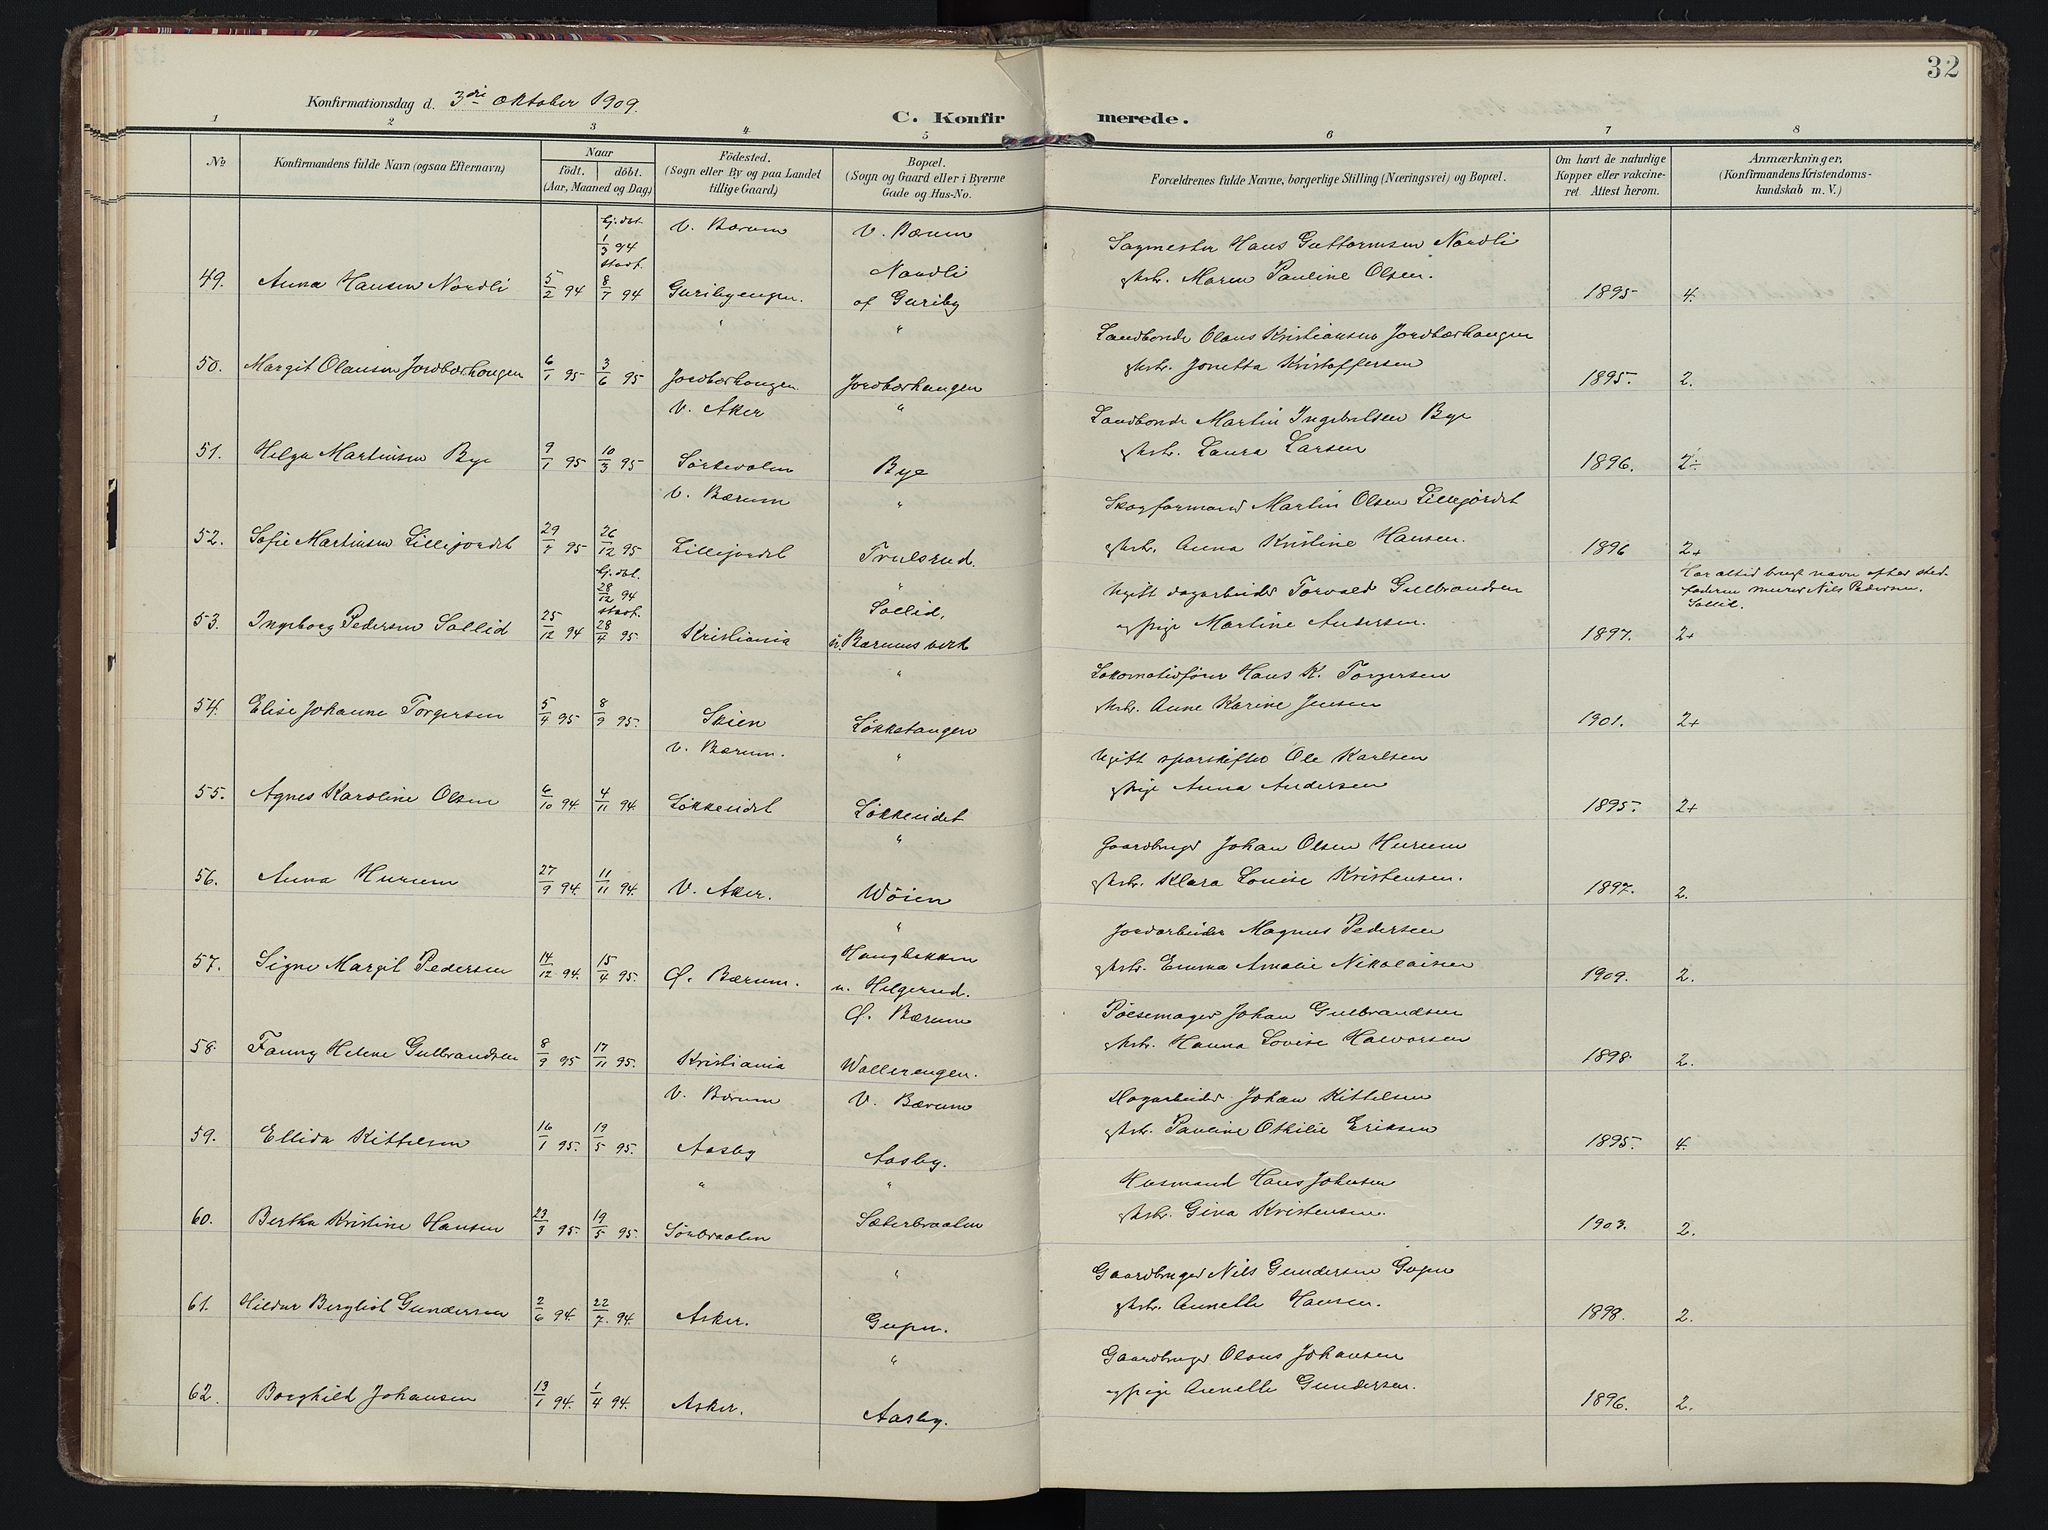 32
Konfirmationsdag d. 3die oktober 1909.
C. Konfirmerede.
1 2 3 4 5 6 7 8
No
Konfirmandens fulde Navn (ogsaa Efternavn)
Naar
födt. döbt.
(Aar, Maaned og Dag)
Födested.
(Sogn eller By og paa Landet
tillige Gaard)
Bopæl.
(Sogn og Gaard eller i Byerne
Gade og Hus-No.
Forældrenes fulde Navne, borgerlige Stilling (Næringsvei) og Bopæl.
Om havt de naturlige
Kopper eller vakcine-
ret. Attest herom.
Anmærkninger,
(Konfirmandens Kristendoms-
kundskab m. V.)
hj. dbt. V. Bærum V. Bærum Sagmester Hans Guttormsen Nordli
1/3 94 stadf. Nordli
49. Anna Hansen Nordli 5/2 94 8/7 94 Guribyengen. af Guriby & hstr. Maren Pauline Olsen. 1895 4.
" " Landbonde Olaus Kristiansen Jordbærhaugen
50. Margit Olausen Jordbærhaugen 6/1 95 3/6 95 Jordbærhaugen Jordbærhaugen & hstr. Jonetta Kristoffersen 1895. 2.
V. Aker " Landbonde Martin Ingebretsen Bye
51. Helga Martinsen Bye 9/1 95 10/3 95 Sørkedalen Bye & hstr. Laura Larsen 1896. 2÷
V. Bærum " Skogformand Martin Olsen Lillejordet
52. Sofie Martinsen Lillejordet 29/7 95 26/12 95 Lillejordet Trulsrud. & hstr. Anna Kristine Hansen. 1896 2+
hj. dbt. " Ugift dagarbeider Torvald Gulbrandsen Har altid brugt navn efter sted-
28/12 94 stadf. Sollid, faderen murer Nils Pedersen
Sollid.
53. Ingeborg Pedersen Sollid 25/12 94 28/4 95 Kristiania u. Bærums verk og pige Martine Andersen. 1897. 2+
" Lokomotivfører Hans K. Torgersen
54. Elise Johanne Torgersen 5/4 95 8/9 95. Skien Løkketangen & hstr. Anne Karine Jensen 1901. 2+
V. Bærum. " Ugift sporskifter Ole Karlsen
55. Agnes Karoline Olsen 6/10 94. 4/11 94 Løkkeridet Løkkeridet & pige Anna Andersen 1895. 2+
" Gaardbruger Johan Olsen Hurum
56. Anna Hurum 27/9 94. 11/11 94. V. Aker. Wøien & hstr. Klara Louise Kristensen. 1897. 2.
" Jordarbeider Magnus Pedersen
Haugbekken
57. Signe Margit Pedersen 14/12 94. 15/4 95. Ø. Bærum. u. Helgerud. & hstr. Emma Amalie Nikolaisen 1909. 2.
Ø. Bærum Pølsemager Johan Gulbrandsen
58. Fanny Helene Gulbrandsen 8/9 95 17/11 95. Kristiania Wallerengen. & hstr. Hanna Lovise Halvorsen 1898. 2.
V. Bærum V. Bærum Dagarbeider Johan Kittelsen
59. Ellida Kittelsen 16/1 95. 19/5 95. Aasby Aasby. & hstr. Pauline Othilie Eriksen 1895. 4.
" " Husmand Hans Johnsen
60. Bertha Kristine Hansen 23/3 95. 19/5 95. Sørbraaten Sæterbraaten & hstr. Gina Kristensen. 1903. 2.
" Gaardbruger Nils Gundersen Gupu
61. Hildur Bergliot Gundersen 2/6 94. 22/7. 94. Asker. Gupu. & hstr. Annette Hansen. 1898. 2.
" Gaardbruger Olaus Johansen
62. Borghild Johansen 13/1 94. 1/4 94. Asker. Aasby. og pige Annette Gundersen. 1896. 2.